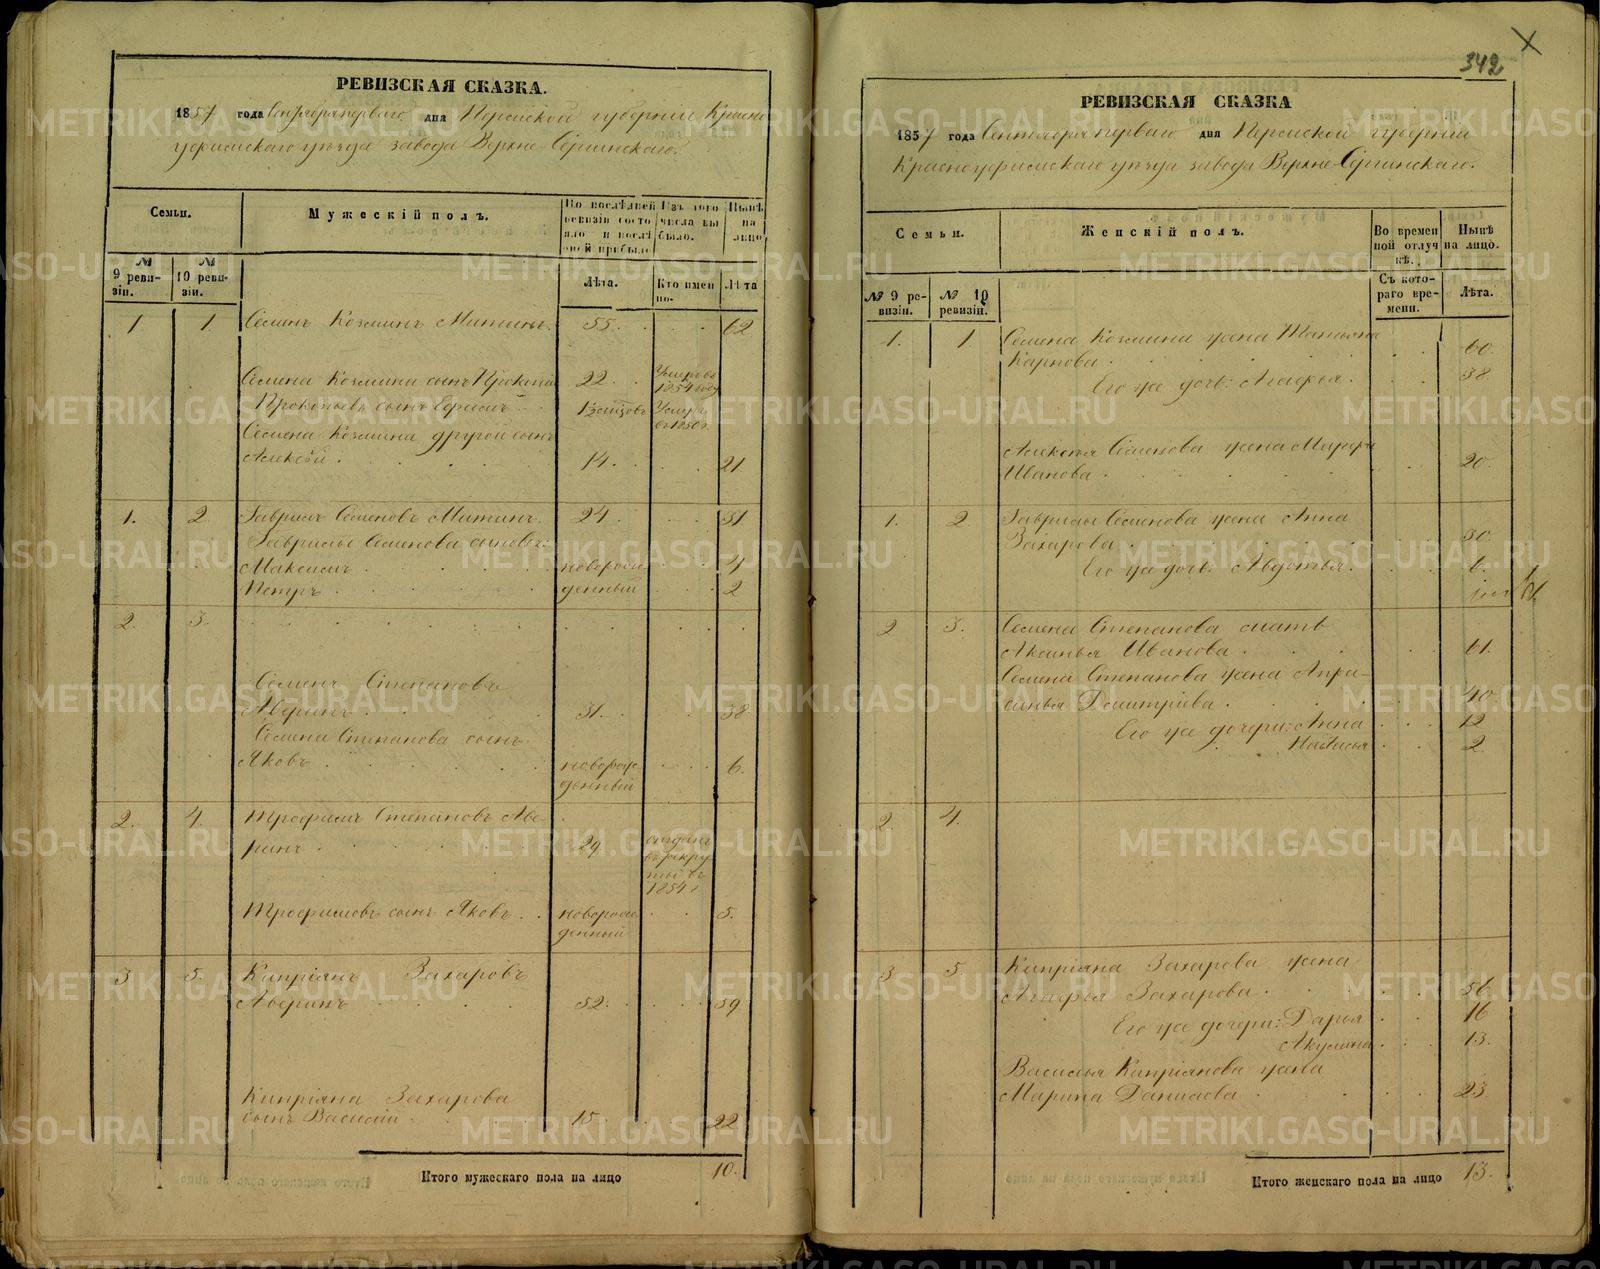 РЕВИЗСКАЯ СКАЗКА.
1857 года Сентября перваго дня Пермской губерніи Красно
уфимскаго уѣзда завода Верхне-Сергинскаго.
Семьи.
Мужескій полъ.
По послѣдней ревизіи состояло и послѣ оной прибыло
Изъ того числа выбыло.
Нынѣ на лицо
№ 9 ревизіи.
№ 10 ревизіи.
Лѣта.
Кто именно.
Лѣта
1 1. Семенъ Козминъ Митинъ. 55. 62
Семена Козмина сынъ Прокопій 22. Умеръ въ 1854 году
Прокопьевъ сынъ Герасимъ Умеръ въ 1850 г.
Семена Козмина другой сынъ
Алексѣй. 14. 21
1. 2 Гаврилъ Семеновъ Митинъ. 24. 31
Гаврилы Семенова сыновья:
Максимъ новорож 4
Петръ денный 2
2. 3.
Семенъ Степановъ
Аверинъ 31. 38
Семена Степанова сынъ
Яковъ новорож 6.
денный
2. 4. Трофимъ Степановъ Аве-
ринъ 29 отданъ въ рекруты въ 1854 г
Трофимовъ сынъ Яковъ новорож 5.
денный
3 5. Кипріянъ Захаровъ
Аверинъ 52. 59
Кипріяна Захарова
сынъ Василій 15. 22
Итого мужескаго пола на лицо 10.
342
РЕВИЗСКАЯ СКАЗКА
1857 года Сентября перваго дня Пермской губерніи
Красноуфимскаго уѣзда завода Верхне-Сергинскаго.
Семьи.
Женскій полъ.
Во временной отлучкѣ.
Нынѣ на лицо.
№ 9 ревизіи.
№ 10 ревизіи.
Съ котораго времени.
Лѣта.
1. 1 Семена Козмина жена Татьяна
Карпова 60
Его же дочь: Агафья. 38
Алексѣя Семенова жена Марфа
Иванова 20.
1. 2 Гаврилы Семенова жена Анна
Захарова 30.
Его же дочь: Авдотья. 6.
2 3. Семена Степанова мать
Аксинья Иванова 61.
Семена Степанова жена Апра-
синья Дмитріева. 40
Его же дочери: Анна 12
Настасья 2
2. 4.
3 5. Кипріяна Захарова жена
Агафья Захарова 56
Его же дочери: Дарья 16
Акулина 13.
Василья Кипріянова жена
Марина Данилова 23
Итого женскаго пола на лицо 13.
METRIKI.GASO-URAL.RU